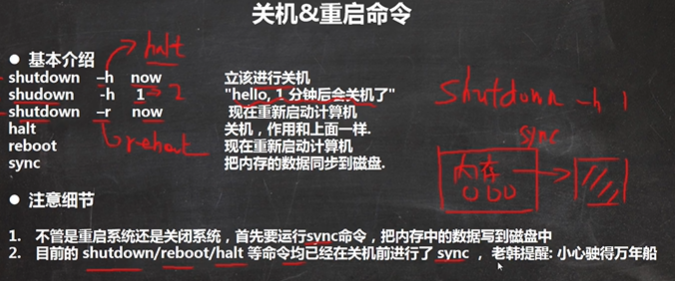 关机&重启命令
halt
● 基本介绍
shutdown –h now 立该进行关机
shudown -h 1 2 "hello, 1 分钟后会关机了"
shutdown –r now 现在重新启动计算机
halt 关机，作用和上面一样.
reboot 现在重新启动计算机
sync 把内存的数据同步到磁盘.
reboot
shutdown -h 1
sync
内存
● 注意细节
1. 不管是重启系统还是关闭系统，首先要运行sync命令，把内存中的数据写到磁盘中
2. 目前的 shutdown/reboot/halt 等命令均已经在关机前进行了 sync ， 老韩提醒: 小心驶得万年船